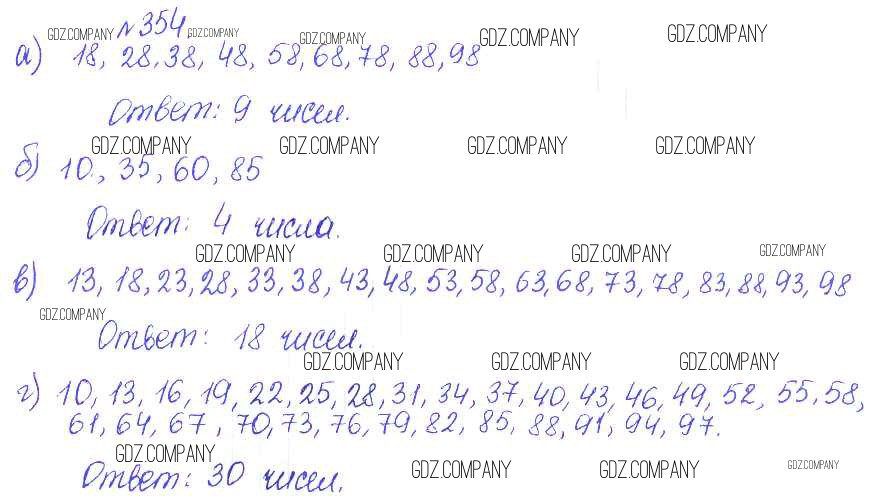 №354
а) 18, 28, 38, 48, 58, 68, 78, 88, 98
Ответ: 9 чисел.
б) 10, 35, 60, 85
Ответ: 4 числа.
в) 13, 18, 23, 28, 33, 38, 43, 48, 53, 58, 63, 68, 73, 78, 83, 88, 93, 98
Ответ: 18 чисел.
г) 10, 13, 16, 19, 22, 25, 28, 31, 34, 37, 40, 43, 46, 49, 52, 55, 58,
61, 64, 67, 70, 73, 76, 79, 82, 85, 88, 91, 94, 97.
Ответ: 30 чисел.
GDZ.COMPANY GDZ.COMPANY GDZ.COMPANY GDZ.COMPANY GDZ.COMPANY
GDZ.COMPANY GDZ.COMPANY GDZ.COMPANY GDZ.COMPANY
GDZ.COMPANY GDZ.COMPANY GDZ.COMPANY GDZ.COMPANY
GDZ.COMPANY
GDZ.COMPANY GDZ.COMPANY GDZ.COMPANY
GDZ.COMPANY GDZ.COMPANY GDZ.COMPANY GDZ.COMPANY